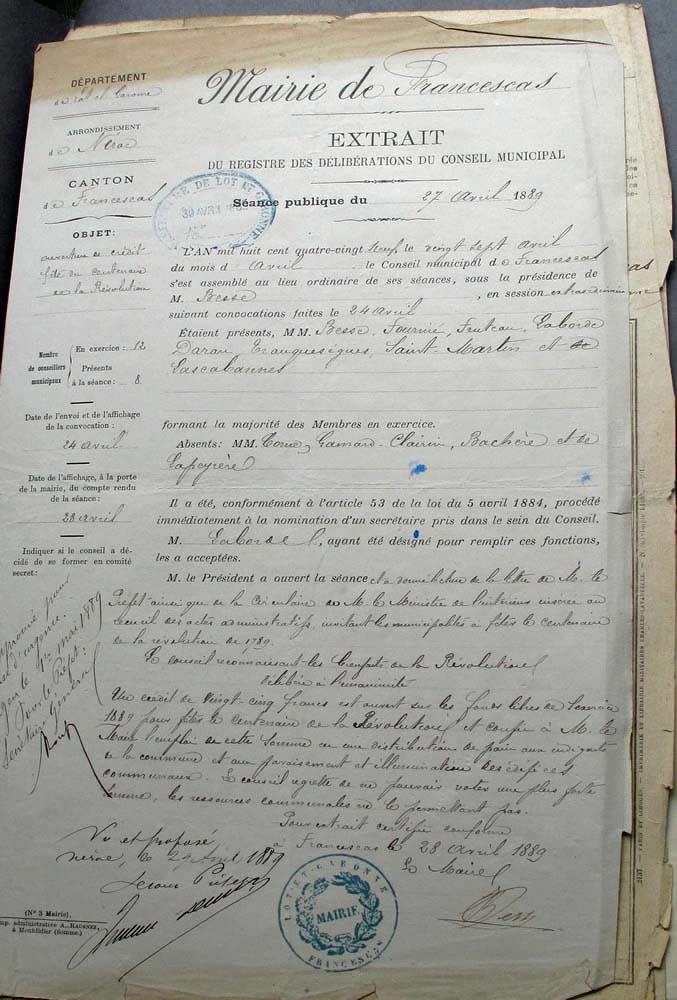 DÉPARTEMENT
de Lot et Garonne
ARRONDISSEMENT
de Nérac
CANTON
de Francescas
OBJET:
ouverture de crédit
fête du centenaire
de la Révolution
Nombre de conseillers municipaux
En exercice: 12
Présents à la séance: 8
Date de l'envoi et de l'affichage
de la convocation:
24 avril
Date de l'affichage, à la porte
de la mairie, du compte rendu
de la séance:
28 avril
Indiquer si le conseil a dé-
cidé de se former en comité
secret:
1er mai 1889
Pour le Préfet:
Secrétaire Général
Mairie de Francescas
EXTRAIT
DU REGISTRE DES DÉLIBÉRATIONS DU CONSEIL MUNICIPAL
DE LOT ET GARONNE
30 AVRIL
Séance publique du 27 Avril 1889
L'AN mil huit cent quatre-vingt neuf le vingt sept avril
du mois d'Avril, le Conseil municipal de Francescas
s'est assemblé au lieu ordinaire de ses séances, sous la présidence de
M. Besse, en session extraordinaire
suivant convocations faites le 24 avril
Étaient présents, MM. Besse, Fournié, Fruteau, Laborde
Darau, Tranquesègues, Saint-Martin et de
Lascabannes
formant la majorité des Membres en exercice.
Absents: MM. Gamard-Clairin, Bachère et de
Lapeyrère
Il a été, conformément à l'article 53 de la loi du 5 avril 1884, procédé
immédiatement à la nomination d'un secrétaire pris dans le sein du Conseil.
M. Laborde, ayant été désigné pour remplir ces fonctions,
les a acceptées.
M. le Président a ouvert la séance et a donné lecture de la lettre de M. le
Préfet ainsi que de la Circulaire de M. le Ministre de l'intérieur insérée au
recueil des actes administratifs, invitant les municipalités à fêter le centenaire
de la révolution de 1789.
Le conseil reconnaissant les bienfaits de la Révolution
délibère à l'unanimité
Un crédit de vingt-cinq francs est ouvert sur les fonds libres de l'exercice
1889 pour fêter le centenaire de la Révolution et confie à M. le
Maire l'emploi de cette somme en une distribution de pain aux indigents
de la commune et au pavoisement et illumination des édifices
communaux. Le conseil regrette de ne pouvoir voter une plus forte
somme, les ressources communales ne le permettant pas.
Pour extrait certifié conforme
à Francescas le 28 Avril 1889
Le Maire
Vu et proposé
Nérac, le 29 Avril 1889
LOT-ET-GARONNE
MAIRIE
FRANCESCAS
(N° 3 Mairie).
Imp. administrative A. RADENEZ,
à Montdidier (Somme).